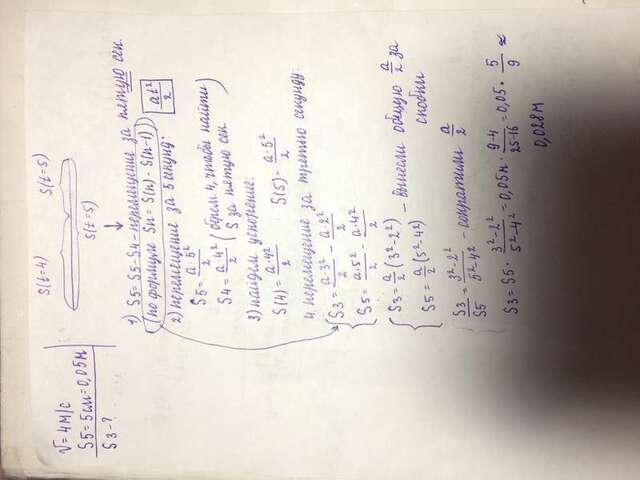 V=4м/с
S5=5см=0,05м
S3-?
S(t=4) S(t=5)
S(t=5)
1) S5=S5-S4-перемещение за пятую сек.
(по формуле Sn=S(n)-S(n-1)) at²/2
2) перемещение за 5 секунд:
S5=a·5²/2
S4=a·4²/2 (берем 4, чтобы найти
S за пятую сек)
3) найдем ускорение:
S(4)=a·4²/2 S(5)=a·5²/2
4. перемещение за третью секунду:
S3=a·3²/2-a·2²/2
S5=a·5²/2-a·4²/2
S3=a/2(3²-2²) - вынесли общую a/2 за
S5=a/2(5²-4²) скобки
S3/S5=3²-2²/5²-4² - сократили a/2
S3=S5·3²-2²/5²-4²=0,05м·9-4/25-16=0,05·5/9≈
0,028м